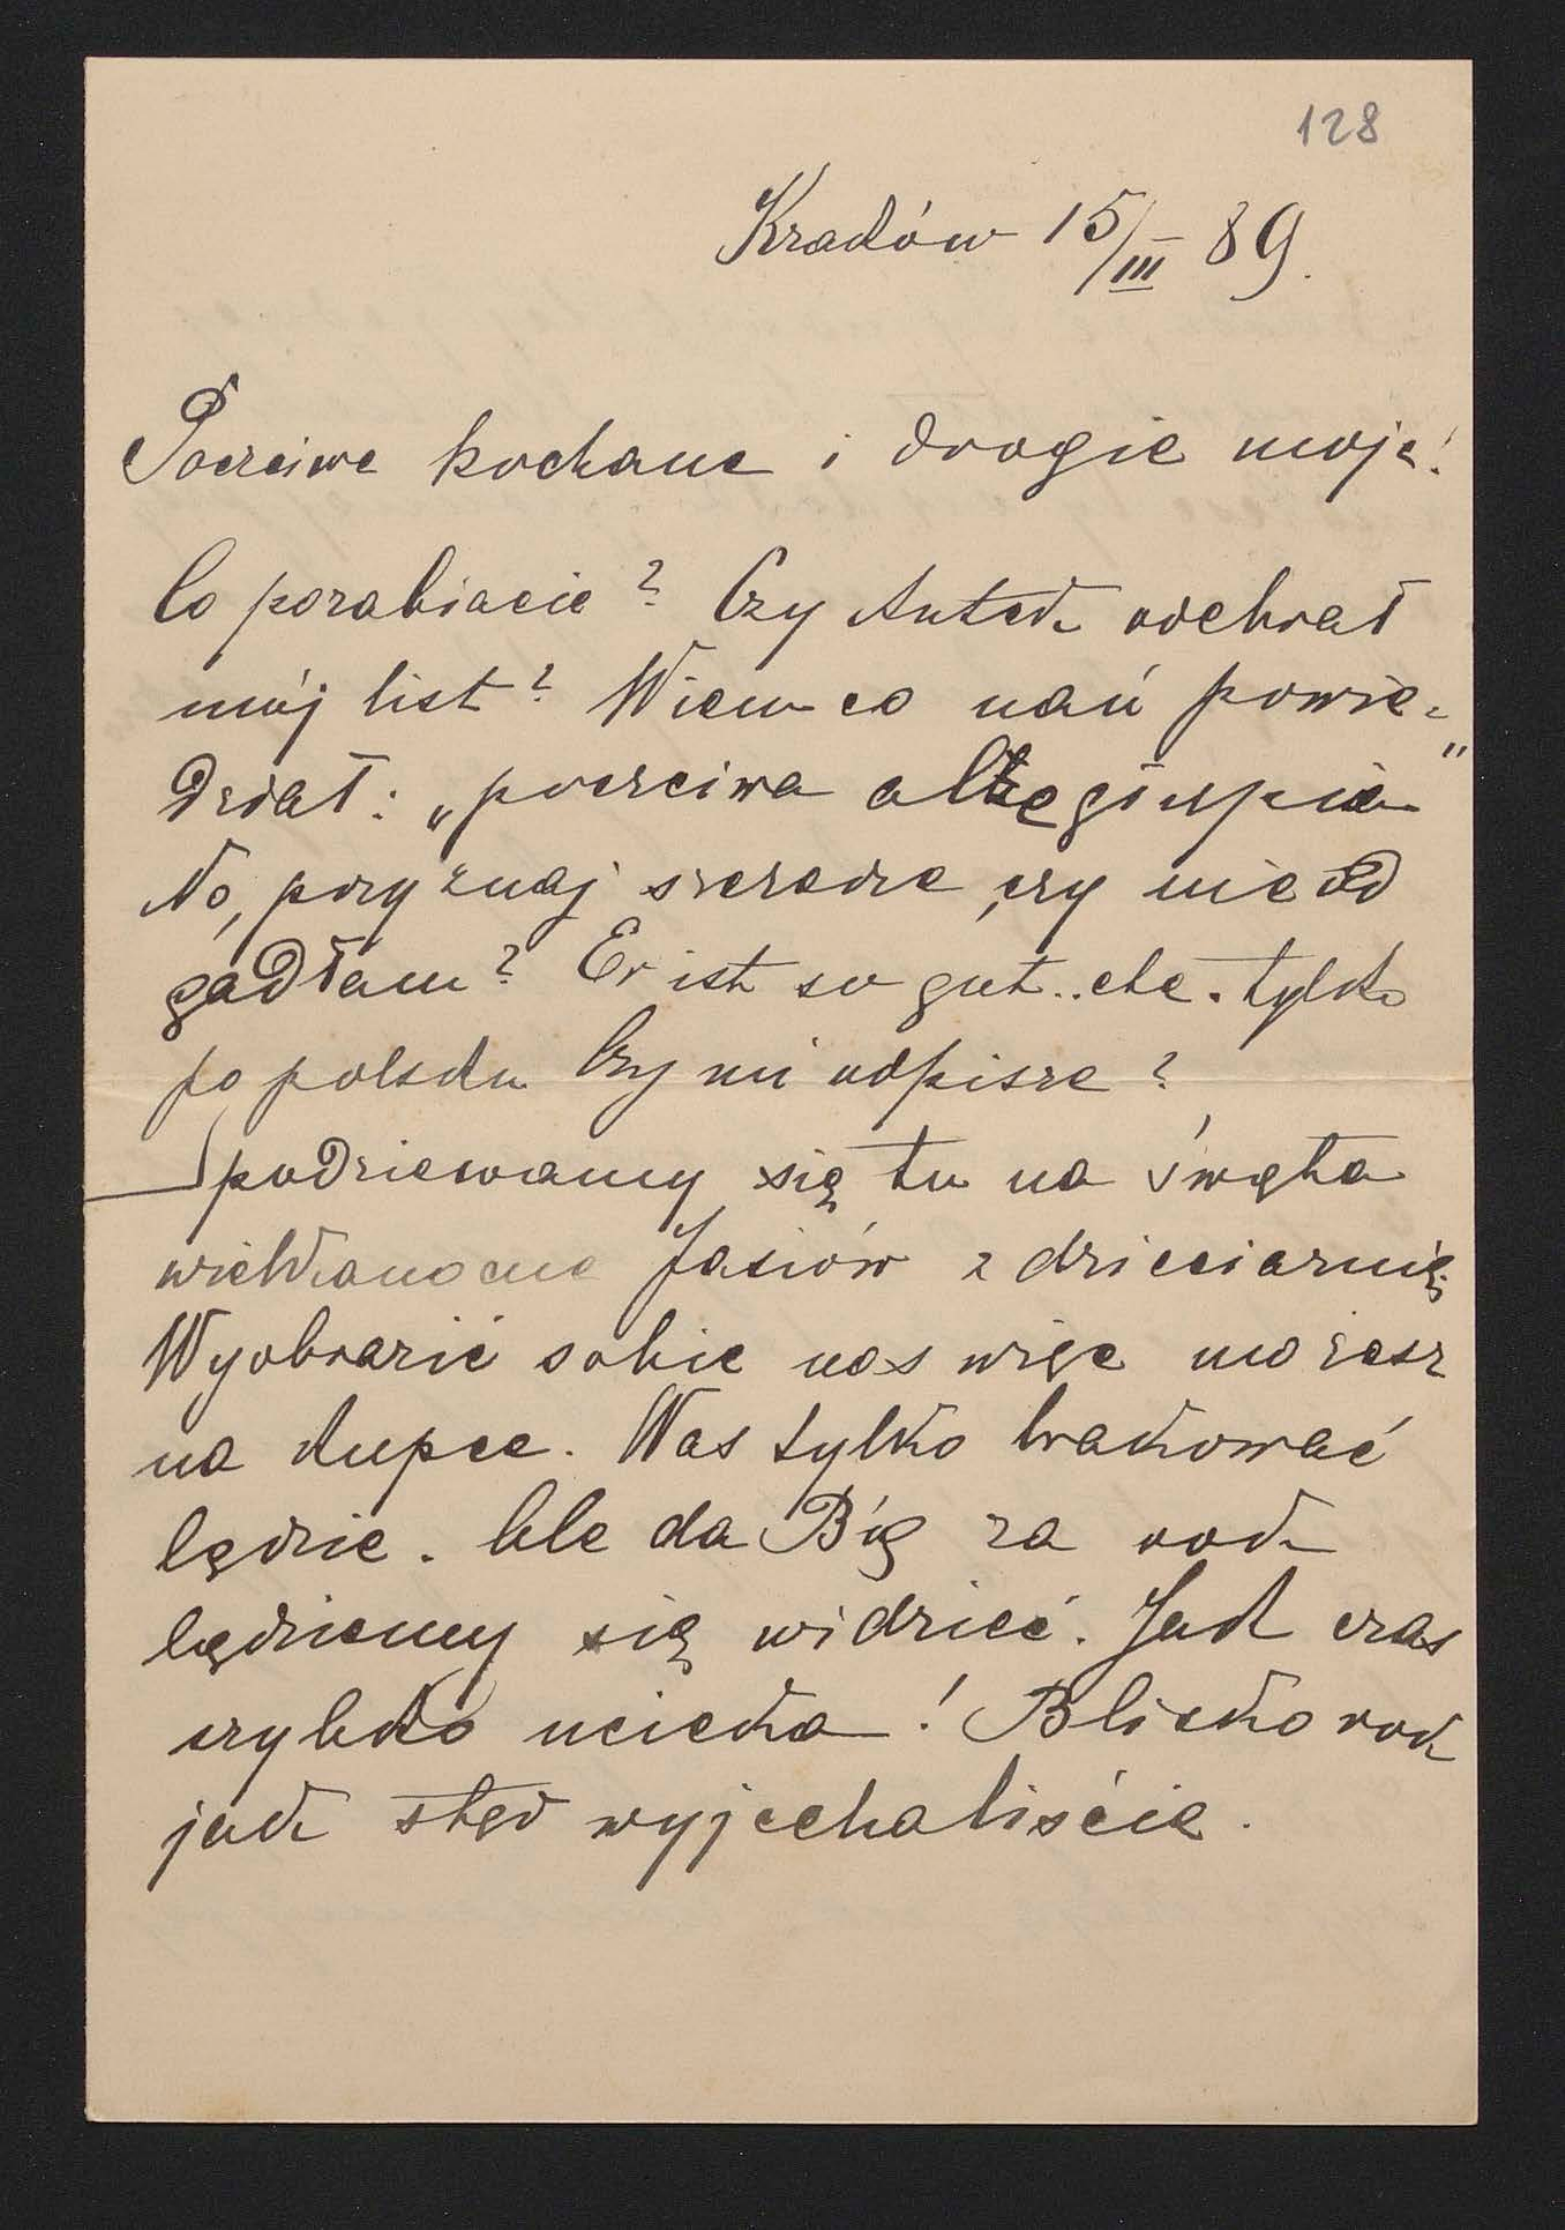 128
Kraków 15/III 89.
Poczciwe kochane i drogie moje!
Co porabiacie? Czy Antek odebrał
mój list? Wiem co nań powie-
dział: „poczciwa ale głupia"
No, przyznaj szczerze, czy nie od
gadłam? Er ist so gut.. etc. tylko
po polsku Czy mi odpisze?
Spodziewamy się tu na święta
wielkanocne Jasiów z dzieciarnią.
Wyobrazić sobie nas więc możesz
na kupce. Was tylko brakować
będzie. Ale da Bóg za rok
będziemy się widzieć. Jak czas
szybko ucieka! Blisko rok
jak stąd wyjechaliście.